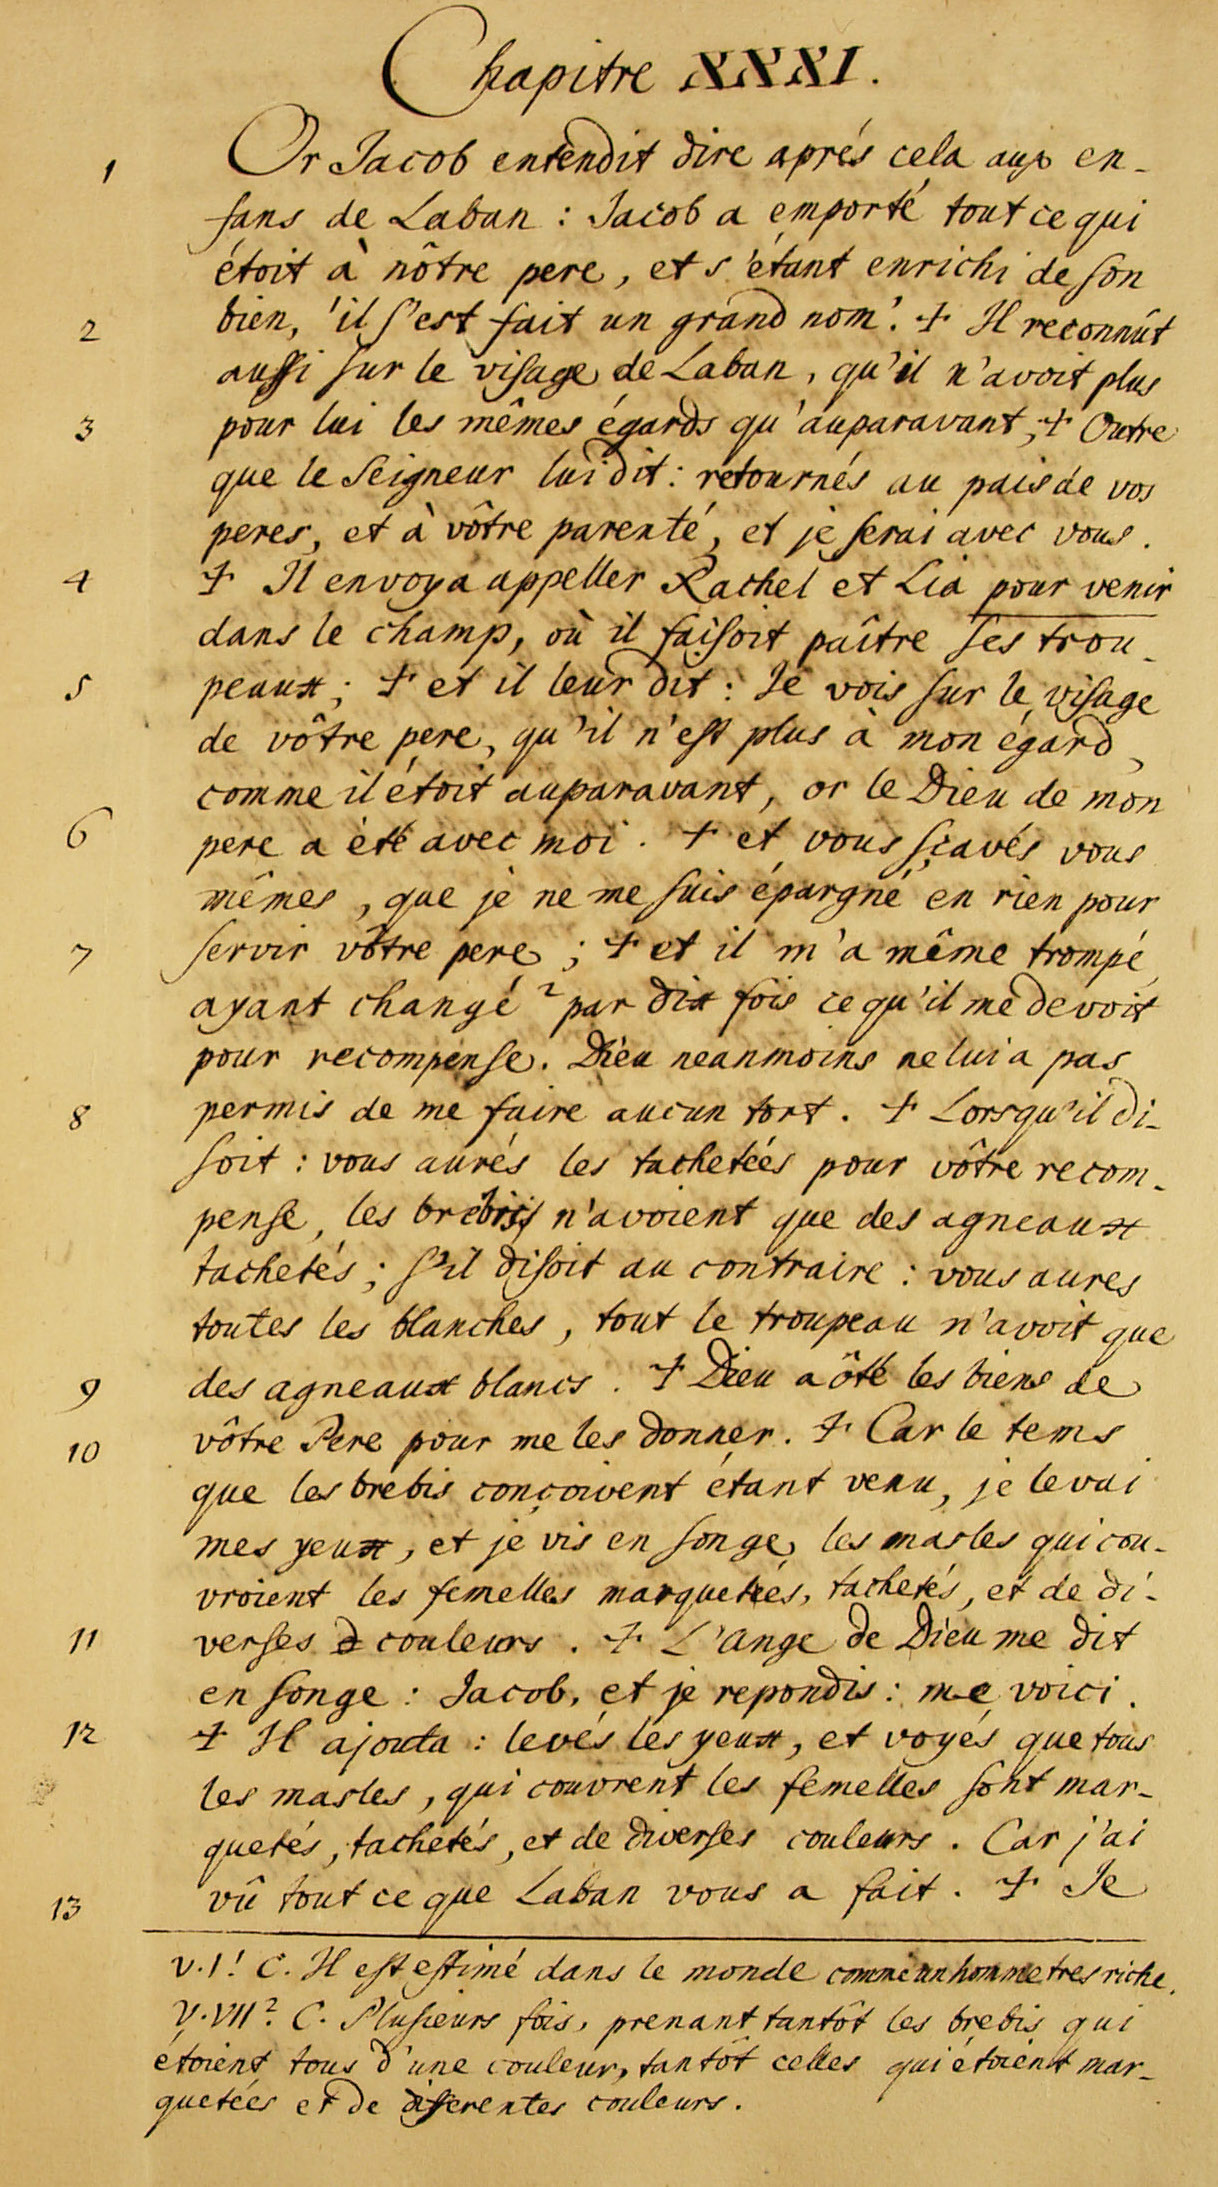 Chapitre XXXI.
1 Or Jacob entendit dire aprés cela aux en-
fans de Laban : Jacob a emporté tout ce qui
étoit à nôtre pere, et s'étant enrichi de son
2 bien, ¹il s'est fait un grand nom¹. + Il reconnût
aussi sur le visage de Laban, qu'il n'avoit plus
3 pour lui les mêmes égards qu'auparavant, + Outre
que le Seigneur lui dit : retournés au païs de vos
peres, et à vôtre parenté, et je serai avec vous.
4 + Il envoya appeller Rachel et Lia pour venir
dans le champ, où il faisoit paître ses trou-
5 peaux ; + et il leur dit : Je vois sur le visage
de vôtre pere, qu'il n'est plus à mon égard,
comme il étoit auparavant, or le Dieu de mon
6 pere a été avec moi. + et vous sçavés vous
mêmes, que je ne me suis épargné en rien pour
7 servir vôtre pere ; + et il m'a même trompé,
ayant changé ² par dix fois ce qu'il me devoit
pour recompense. Dieu neanmoins ne lui a pas
8 permis de me faire aucun tort. + Lorsqu'il di-
soit : vous aurés les tachetées pour vôtre recom-
pense, les brebis n'avoient que des agneaux
tachetés ; s'il disoit au contraire : vous aures
toutes les blanches, tout le troupeau n'avoit que
9 des agneaux blancs. + Dieu a ôté les biens de
10 vôtre Pere pour me les donner. + Car le tems
que les brebis conçoivent étant venu, je levai
mes yeux, et je vis en songe, les masles qui cou-
vroient les femelles marquetées, tachetés, et de di-
11 verses couleurs. + L'Ange de Dieu me dit
en songe : Jacob, et je repondis : me voici.
12 + Il ajouta : levés les yeux, et voyés que tous
les masles, qui couvrent les femelles sont mar-
quetés, tachetés, et de diverses couleurs. Car j'ai
13 vû tout ce que Laban vous a fait. + Je
V.I¹. C. Il est estimé dans le monde comme un homme tres riche.
V.VII². C. Plusieurs fois, prenant tantôt les brebis qui
étoient tous d'une couleur, tantôt celles qui étoient mar-
quetées et de diferentes couleurs.